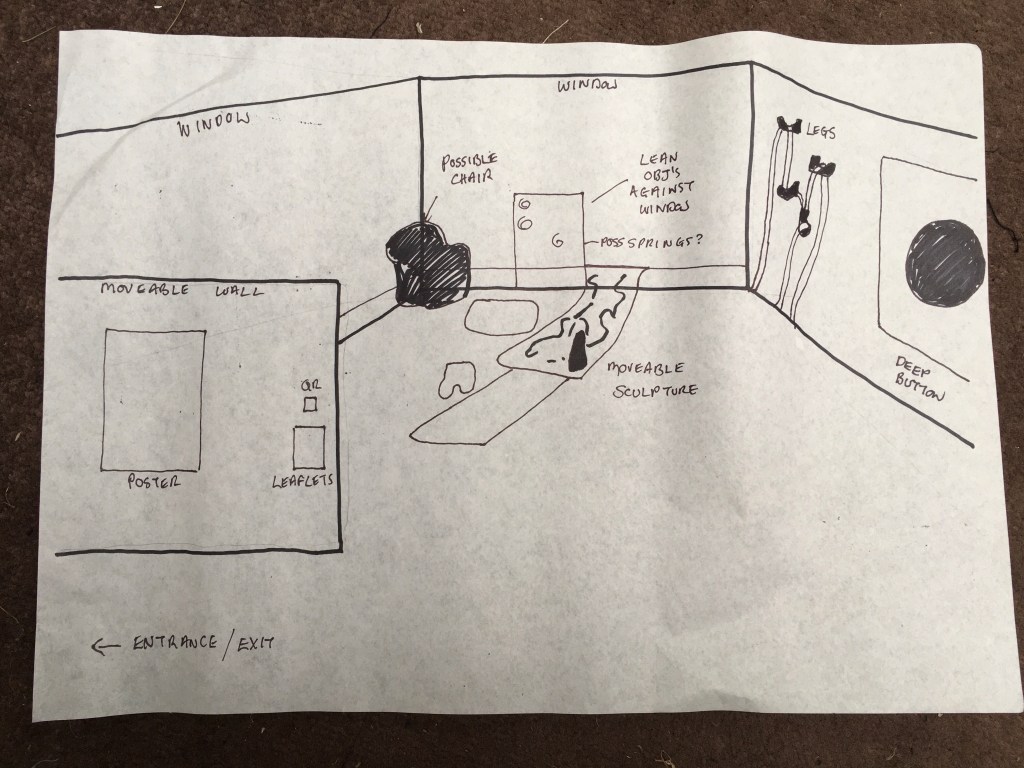 WINDOW
WINDOW
POSSIBLE
CHAIR
LEAN
OBJ'S
AGAINST
WINDOW
LEGS
POSS SPRINGS?
MOVEABLE WALL
QR
POSTER
LEAFLETS
MOVEABLE
SCULPTURE
DEEP
BUTTON
← ENTRANCE/EXIT